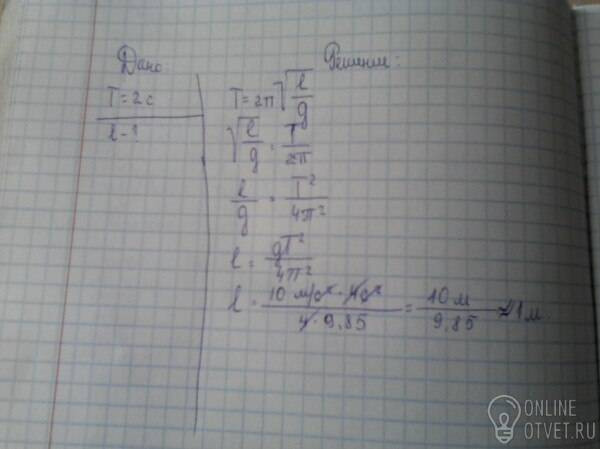 Дано
T = 2с
l - ?
Решение:
T = 2π√(l/g)
√(l/g) = T/2π
l/g = T²/4π²
l = gT²/4π²
l = 10 м/с² · 4с² / 4 · 9,85 = 10 м / 9,85 ≈ 1 м
ONLINE
OTVET.RU